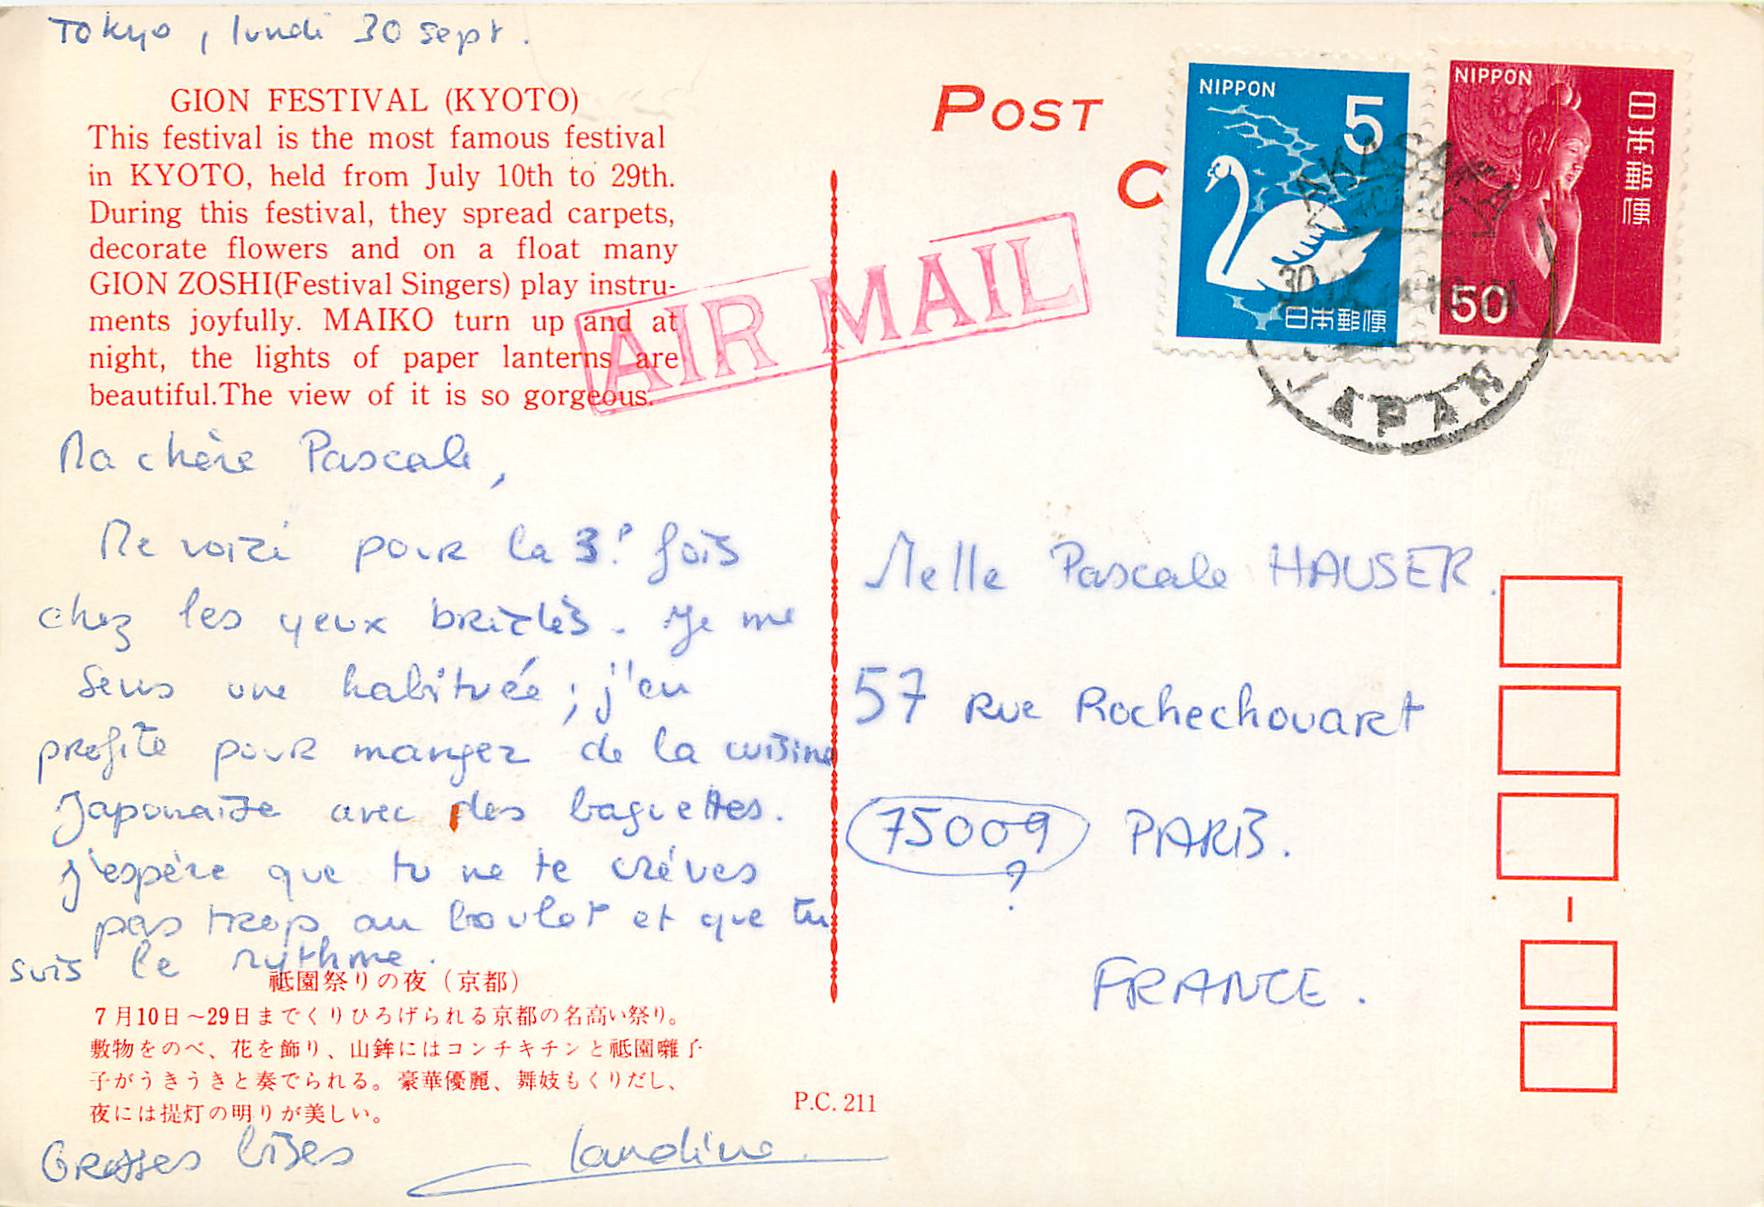 Tokyo, lundi 30 sept.
GION FESTIVAL (KYOTO)
This festival is the most famous festival
in KYOTO, held from July 10th to 29th.
During this festival, they spread carpets,
decorate flowers and on a float many
GION ZOSHI(Festival Singers) play instru-
ments joyfully. MAIKO turn up and at
night, the lights of paper lanterns are
beautiful.The view of it is so gorgeous.
AIR MAIL
Ma chère Pascale,
Me voici pour la 3e fois
chez les yeux bridés. Je me
sens une habituée ; j'en
profite pour manger de la cuisine
Japonaise avec des baguettes.
J'espère que tu ne te crèves
pas trop au boulot et que tu
suis le rythme.
祇園祭りの夜（京都）
7月10日～29日までくりひろげられる京都の名高い祭り。
敷物をのべ、花を飾り、山鉾にはコンチキチンと祇園囃子
子がうきうきと奏でられる。豪華優麗、舞妓もくりだし、
夜には提灯の明りが美しい。
Grosses bises
P.C. 211
POST
C
NIPPON
5
日本郵便
NIPPON
50
日本郵便
AKASAKA
30
JAPAN
Melle Pascale HAUSER.
57 Rue Rochechouart
75009 PARIS.
?
FRANCE.